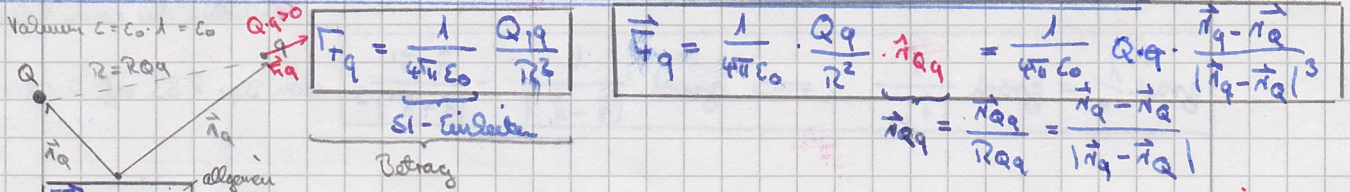 Vakuum ε = ε₀ · 1 = ε₀
Q·q>0
R = R_Qq
Q
q
r⃗_Q
r⃗_q
allgemein
F_q = 1/(4πε₀) Q·q/R²
SI-Einheiten
Betrag
F⃗_q = 1/(4πε₀) · Qq/R² · r̂_Qq = 1/(4πε₀) Q·q · (r⃗_q - r⃗_Q)/|r⃗_q - r⃗_Q|³
r̂_Qq = r⃗_Qq/R_Qq = (r⃗_q - r⃗_Q)/|r⃗_q - r⃗_Q|